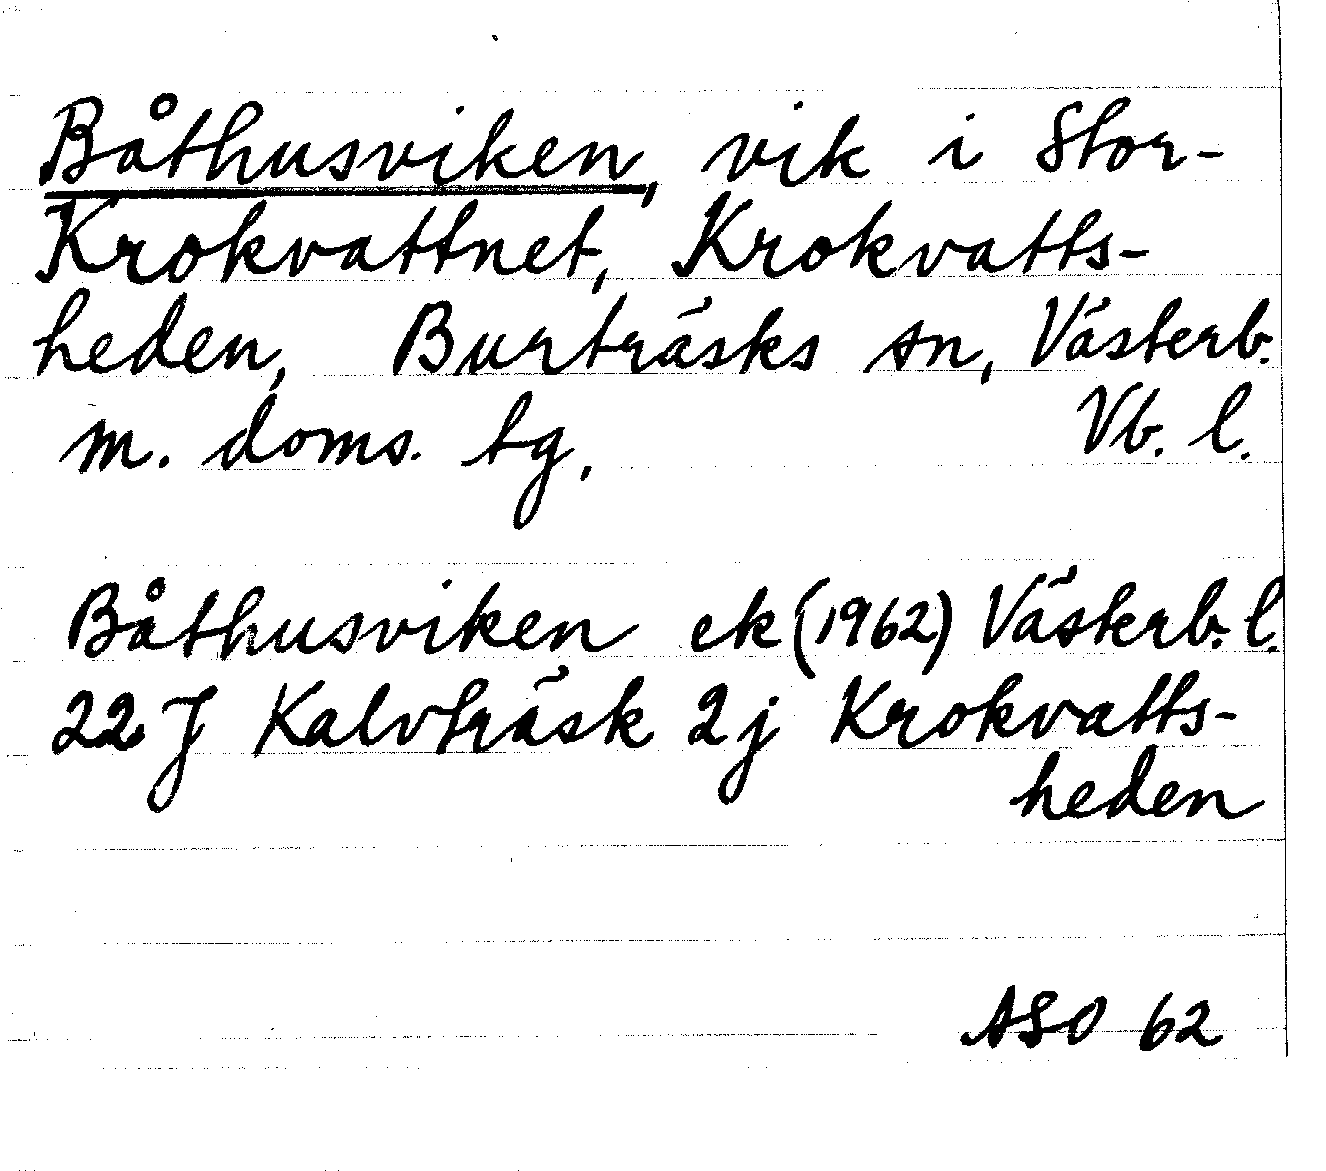 Båthusviken, vik i Stor-
Krokvattnet, Krokvatts-
heden, Burträsks sn, Västerb.
m. doms. tg. Vb. l.
Båthusviken ek (1962) Västerb. l.
22 J Kalvträsk 2j Krokvatts-
heden
ASO 62